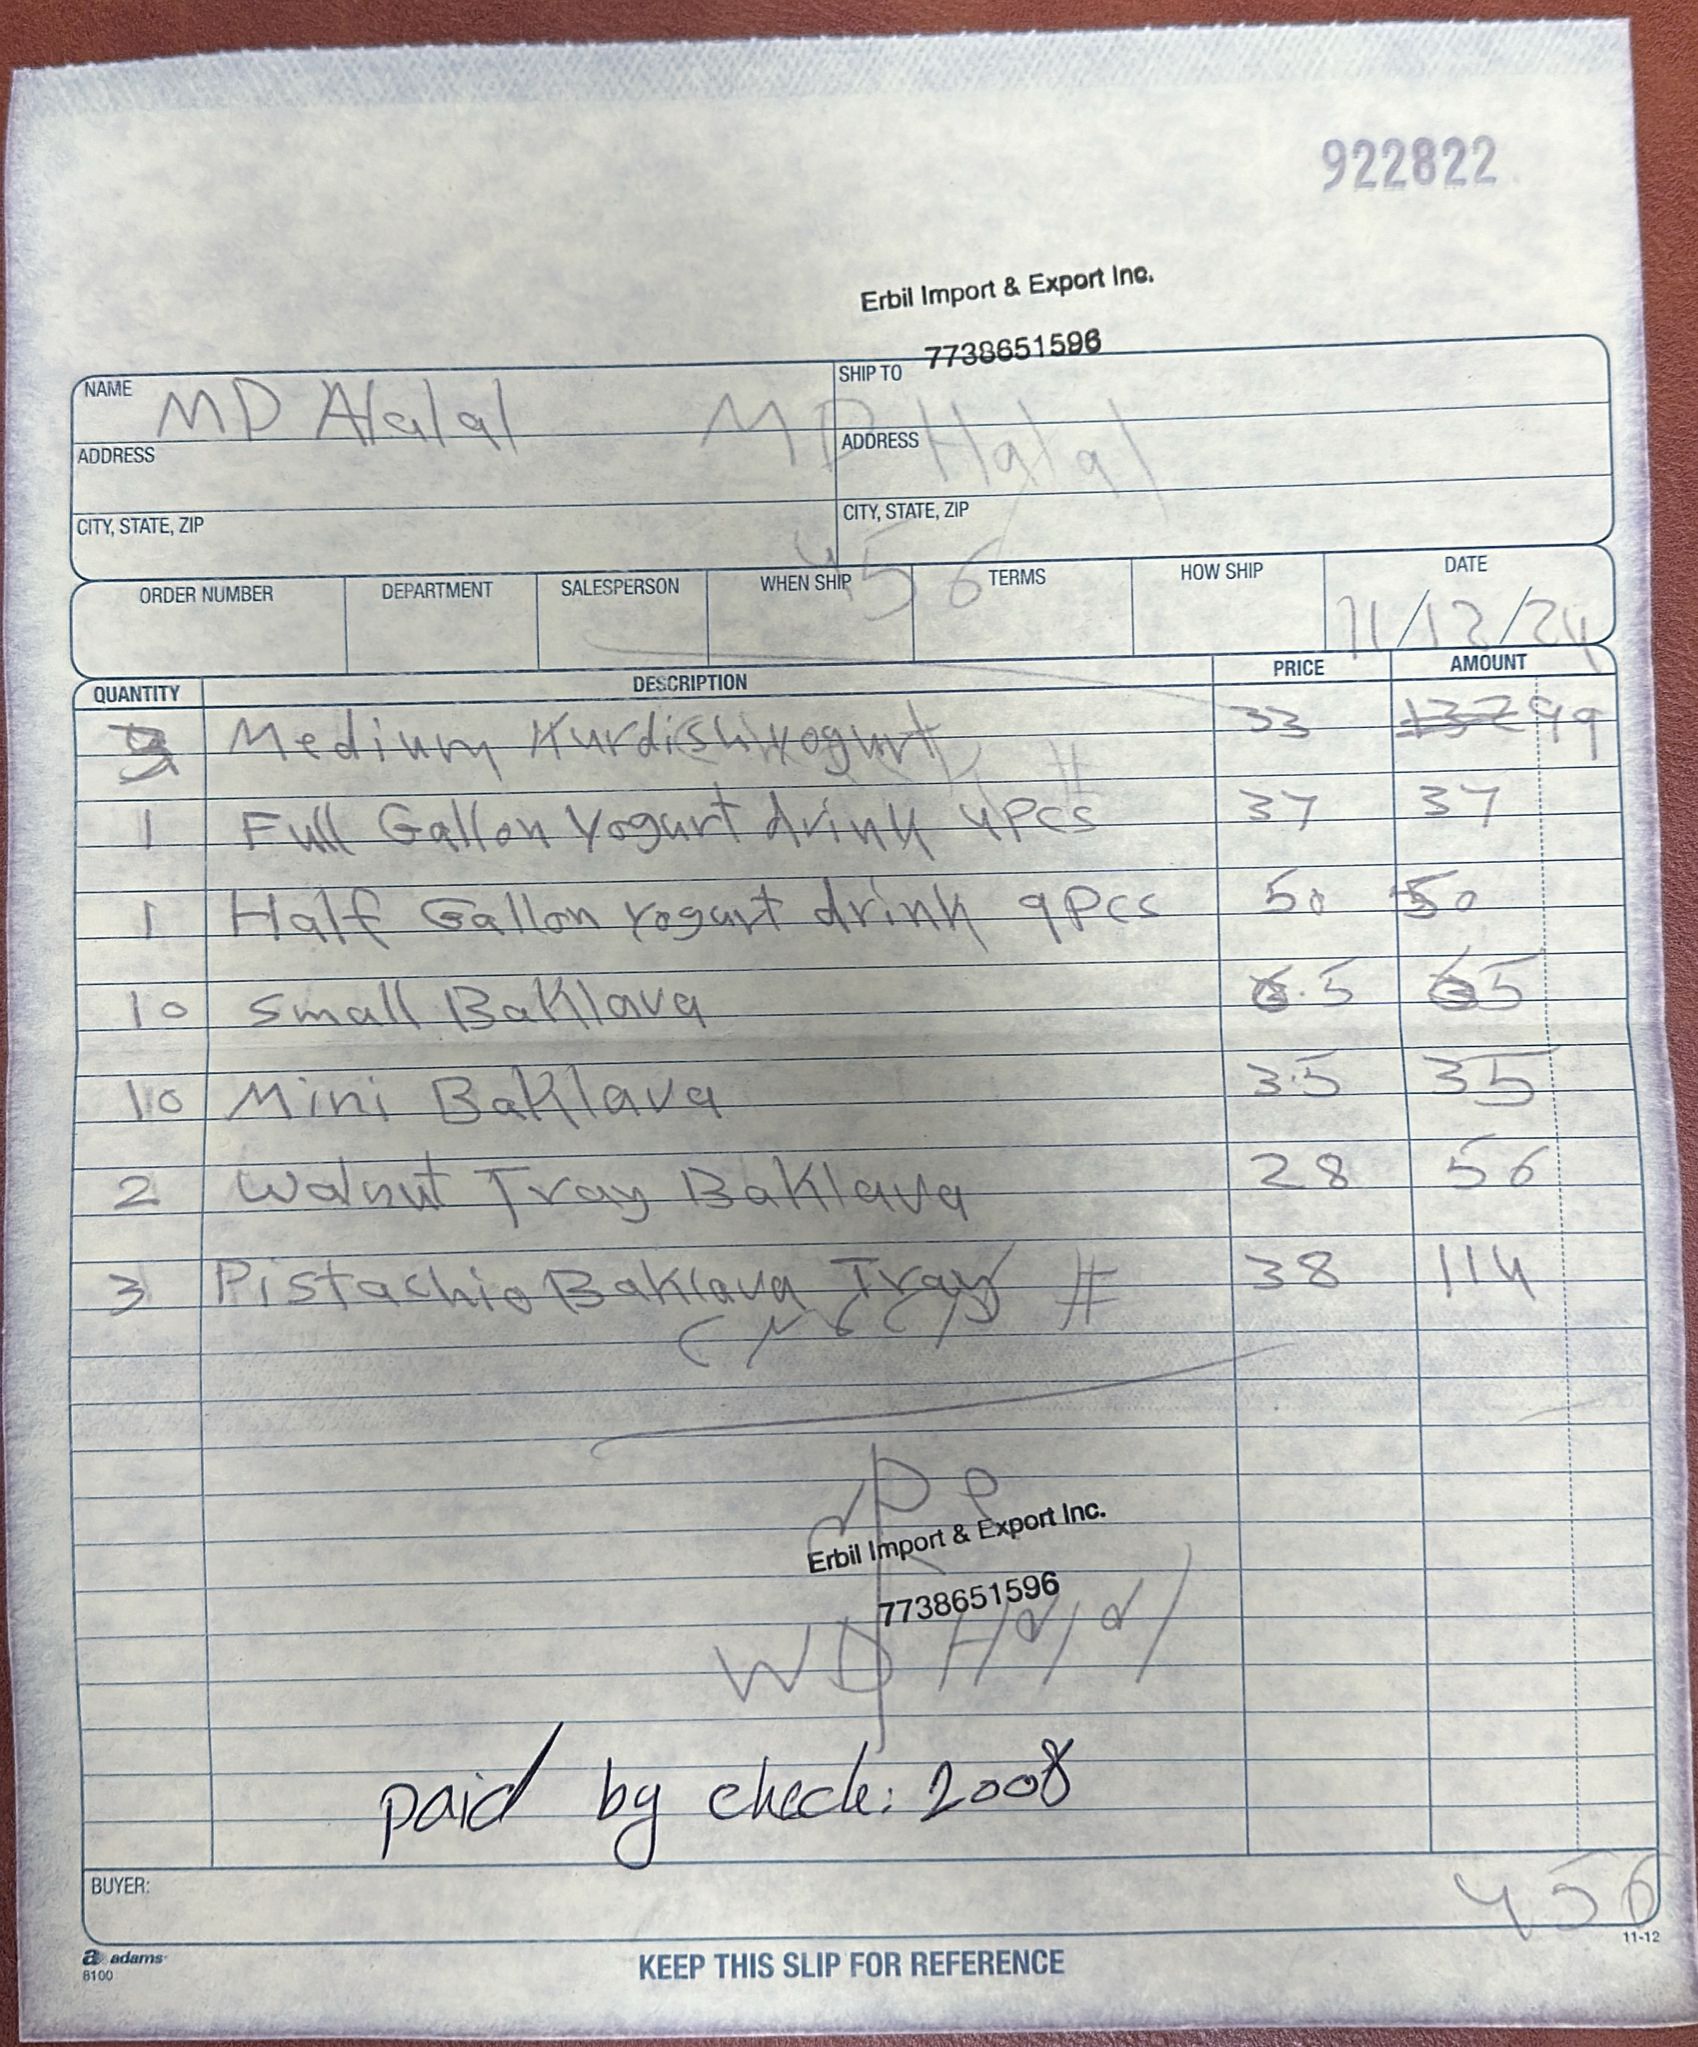 922822
Erbil Import & Export Inc.
7738651596
NAME MD Halal
SHIP TO
MD Halal
ADDRESS
ADDRESS
CITY, STATE, ZIP
CITY, STATE, ZIP
456
ORDER NUMBER DEPARTMENT SALESPERSON WHEN SHIP TERMS HOW SHIP DATE
11/12/24
QUANTITY DESCRIPTION PRICE AMOUNT
3 Medium Kurdish yogurt 33 132 99
1 Full Gallon Yogurt drink 4Pcs 37 37
1 Half Gallon Yogurt drink 9Pcs 50 50
10 Small Baklava 6.5 65
10 Mini Baklava 3.5 35
2 Walnut Tray Baklava 28 56
3 Pistachio Baklava Tray # 38 114
Erbil Import & Export Inc.
7738651596
MD Halal
paid by check: 2008
BUYER: 456
11-12
a adams
8100
KEEP THIS SLIP FOR REFERENCE